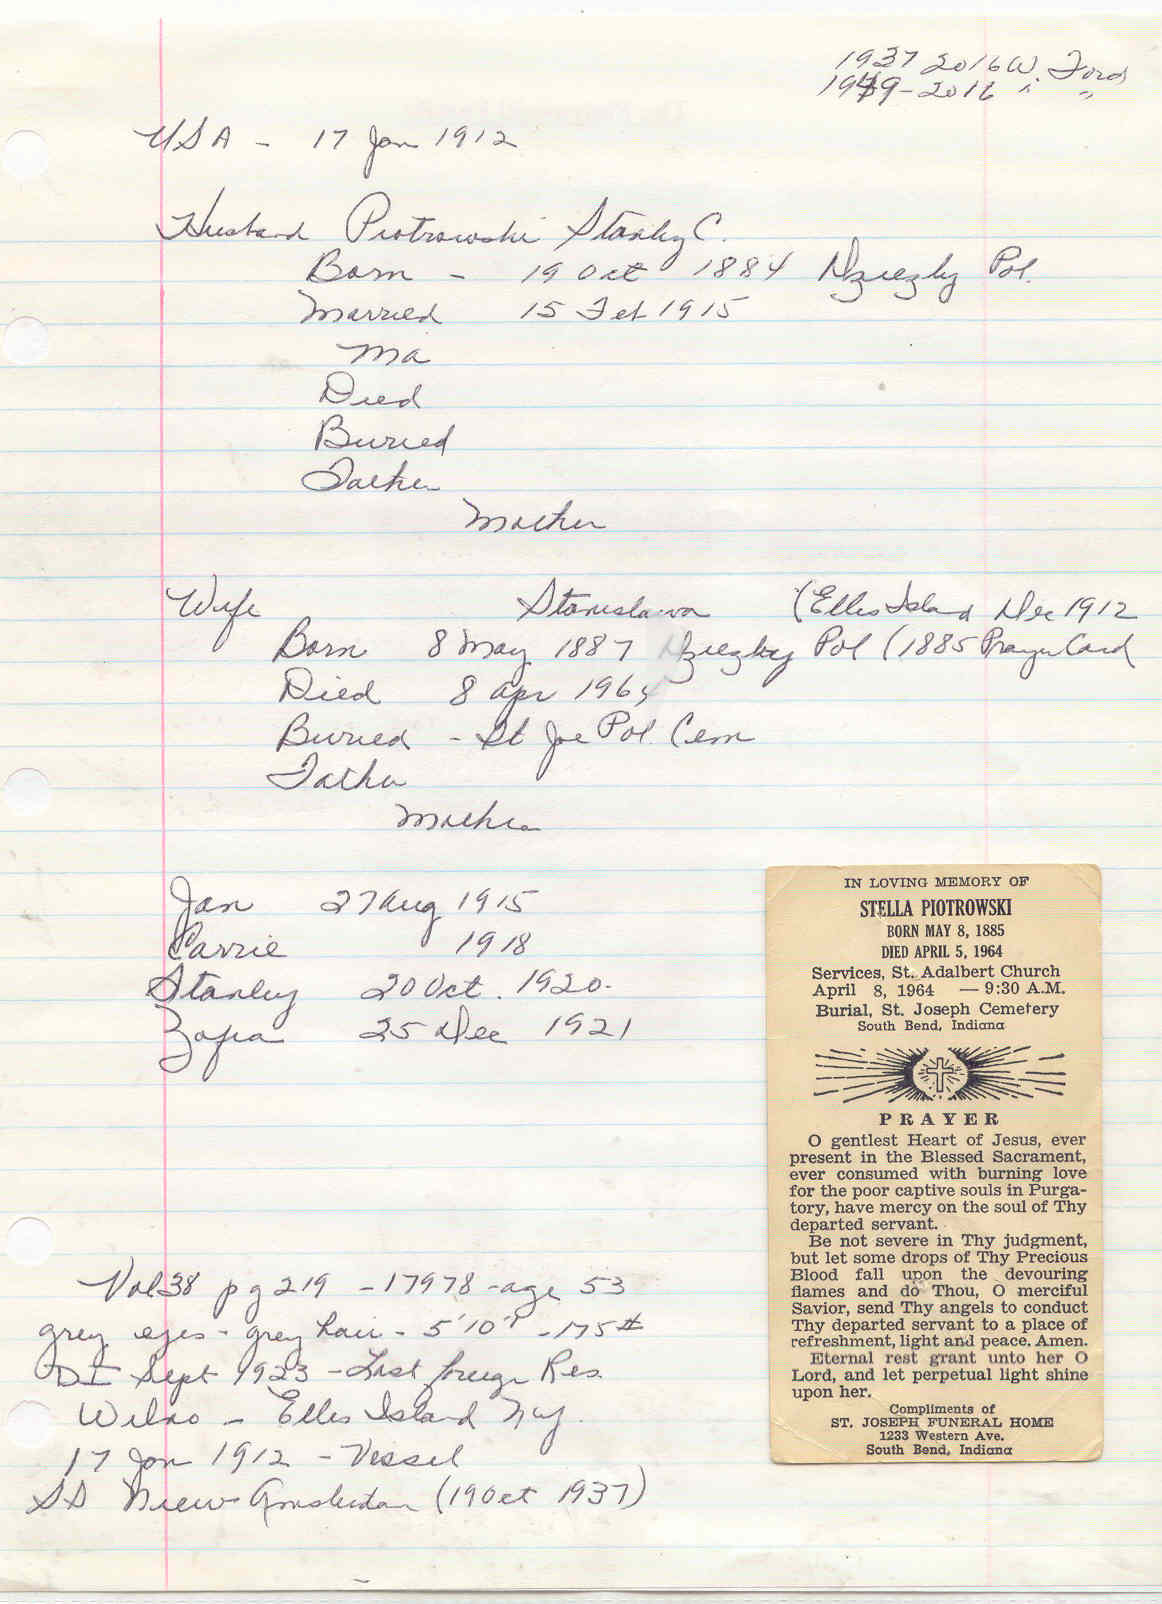 1937 2016 W. Ford
1949-2016 " "
USA - 17 Jan 1912
Husband Piotrowski Stanley C.
Born - 19 Oct 1884 Dziezby Pol.
Married 15 Feb 1915
Ma
Died
Buried
Father
Mother
Wife Stanislawa (Ellis Island Dec 1912
Born 8 May 1887 Dziezby Pol (1885 Prayer Card
Died 8 Apr 1964
Buried - St Joe Pol. Cem
Father
Mother
Jan 27 Aug 1915
Carrie 1918
Stanley 20 Oct. 1920.
Zofia 25 Dec 1921
IN LOVING MEMORY OF
STELLA PIOTROWSKI
BORN MAY 8, 1885
DIED APRIL 5, 1964
Services, St. Adalbert Church
April 8, 1964 — 9:30 A.M.
Burial, St. Joseph Cemetery
South Bend, Indiana
PRAYER
O gentlest Heart of Jesus, ever
present in the Blessed Sacrament,
ever consumed with burning love
for the poor captive souls in Purga-
tory, have mercy on the soul of Thy
departed servant.
Be not severe in Thy judgment,
but let some drops of Thy Precious
Blood fall upon the devouring
flames and do Thou, O merciful
Savior, send Thy angels to conduct
Thy departed servant to a place of
refreshment, light and peace. Amen.
Eternal rest grant unto her O
Lord, and let perpetual light shine
upon her.
Compliments of
ST. JOSEPH FUNERAL HOME
1233 Western Ave.
South Bend, Indiana
Vol 38 pg 219 - 17978 - age 53
grey eyes - grey hair - 5'10" - 175#
DI Sept 1923 - Last foreign Res.
Wilno - Ellis Island NY.
17 Jan 1912 - Vessel
SS Niew Amsterdam (19 Oct 1937)